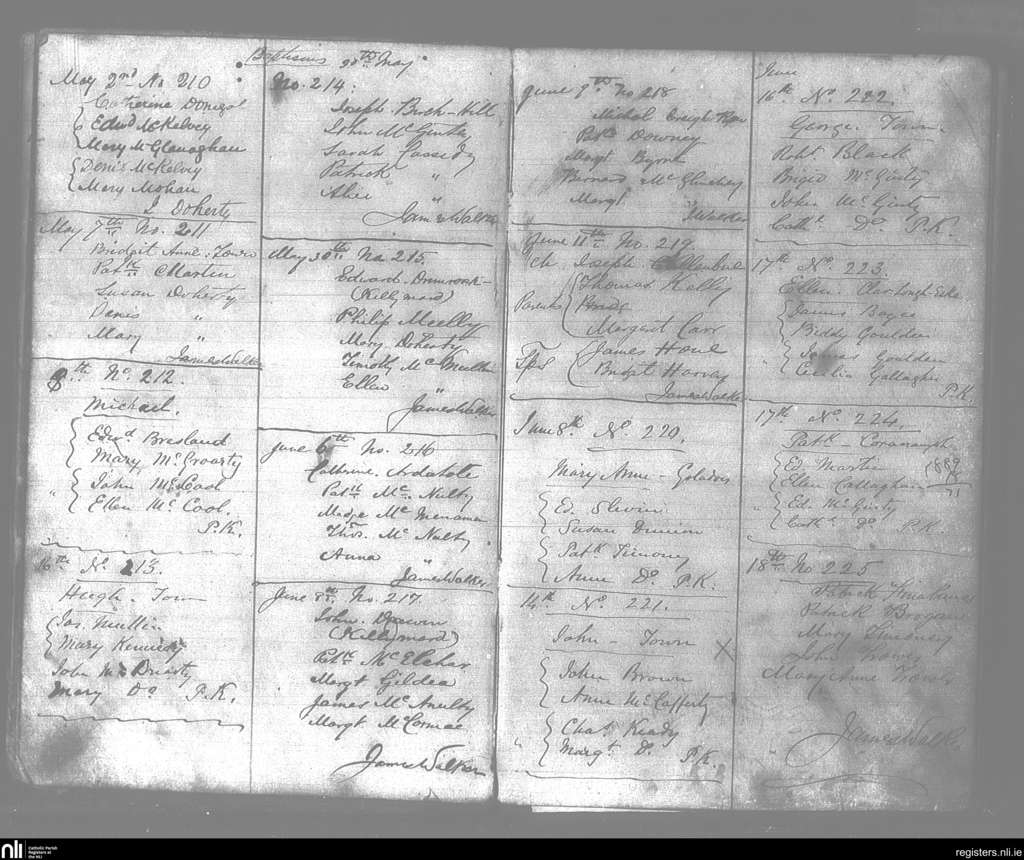 Baptisms 30th May
May 2nd No 210
Catherine Donegal
Edwd McKelvey
Mary McGlanaghan
Denis McKelvey
Mary Mohan
J Doherty
May 7th No. 211
Bridgit Anne. Town
Patk Martin
Susan Doherty
Denis "
Mary "
James Walker
8th No. 212.
Michael.
Edwd Bresland
Mary McGroarty
John McCool
Ellen McCool.
P.K.
16th No 213.
Hugh. Town
Jas. Mullin
Mary Kennedy
John Mc
Mary Do P.K.
No. 214:
Joseph Bush-Hill
John McGinty
Sarah Cassidy
Patrick "
Alice "
James Walker
May 30th No. 215.
Edward
(Killymard)
Philip Meelly
Mary Doherty
Timothy Mc
Ellen "
James Walker
June 6th No. 216
Catherine
Patk McNulty
Madge McMenamin
Thos. McNulty
Anna "
James Walker
June 8th No. 217.
John.
(Killymard)
Patk McElhar
Margt Gildea
James McAnulty
Margt McCormac
James Walker
June 9th No 218
Michal
Patk Downey
Margt Byrne
Bernard McGlinchey
Margt "
J Walker
June 11th No. 219.
Ch. Joseph
Parents Thomas Kelly
Margaret Carr
Sps James Hone
Bridgit Harvey
James Walker
June 8th No. 220.
Mary Anne -
Ed. Slevin
Susan
Patk Timony
Anne Do. P.K.
14th No. 221.
John - Town
John Brown
Anne McCafferty
Chas. Keady
Margt D. P.K.
June
16th No. 222.
George. Town.
Robt. Black
Briged McGinty
John McGinty
Cath Do P.K.
17th No. 223.
Ellen.
James Boyce
Biddy Goulden
James Goulden
Cecilia Gallagher
P.K.
17th No. 224.
Patk -
Ed. Martin
Ellen Callaghan
Ed. McGinty
Cath Do P.K.
18th No 225
Patrick
Patrick Brogan
Mary
John
Mary Anne
James Walker
nli
Catholic Parish
Registers at
the NLI
registers.nli.ie